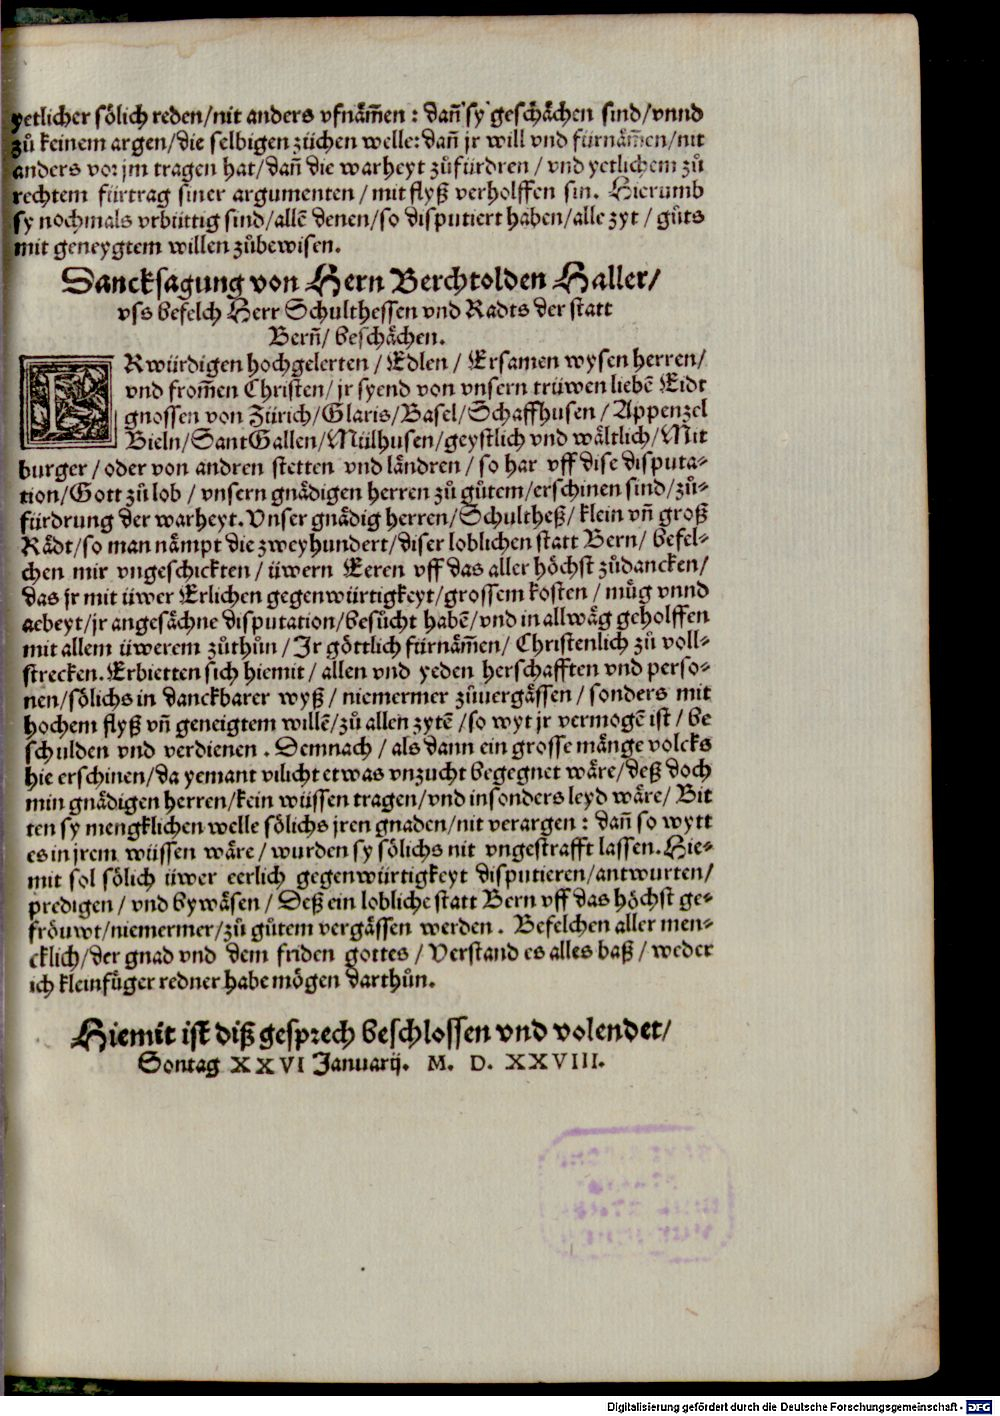 yetlicher sölich reden/nit anders vfnäm̄en : dañ sy geschächen sind/vnnd
zů keinem argen/die selbigen züchen welle: dañ jr will vnd fürnäm̄en/nit
anders vor jm tragen hat/dañ die warheyt zůfürdren / vnd yetlichem zů
rechtem fürtrag siner argumenten / mit flyß verholffen sin. Hierumb
sy nochmals vrbüttig sind/allē denen/so disputiert haben/alle zyt / gůts
mit geneygtem willen zůbewisen.
Dancksagung von Hern Berchtolden Haller/
vss befelch Herr Schulthessen vnd Radts der statt
Berñ/ beschächen.
ERwürdigen hochgelerten / Edlen / Ersamen wysen herren/
vnd from̄en Christen/ jr syend von vnsern trüwen liebē Eidt
gnossen von Zürich/Glaris/Basel/Schaffhusen / Appenzel
Bieln/Sant Gallen/Mülhusen/geystlich vnd wältlich/Mit
burger / oder von andren stetten vnd ländren / so har vff dise disputa-
tion/Gott zů lob / vnsern gnädigen herren zů gůtem/erschinen sind/zů-
fürdrung der warheyt. Vnser gnädig herren/Schultheß/ klein vñ groß
Rädt/so man nämpt die zweyhundert/diser loblichen statt Bern/ befel-
chen mir vngeschickten / üwern Eeren vff das aller höchst zůdancken/
das jr mit üwer Erlichen gegenwürtigkeyt/grossem kosten / müg vnnd
aebeyt/jr angesächne disputation/besůcht habē/vnd in allwäg geholffen
mit allem üwerem zůthůn / Ir göttlich fürnäm̄en/ Christenlich zů voll-
strecken. Erbietten sich hiemit / allen vnd yeden herschafften vnd perso-
nen/sölichs in danckbarer wyß / niemermer zůuergässen / sonders mit
hochem flyß vñ geneigtem willē/zů allen zytē /so wyt jr vermogē ist / be
schulden vnd verdienen . Demnach / als dann ein grosse mänge volcks
hie erschinen/da yemant vilicht etwas vnzucht begegnet wäre/deß doch
min gnädigen herren/kein wüssen tragen/vnd insonders leyd wäre/ Bit
ten sy mengklichen welle sölichs jren gnaden/nit verargen : dañ so wytt
es in jrem wüssen wäre / wurden sy sölichs nit vngestrafft lassen. Hie-
mit sol sölich üwer eerlich gegenwürtigkeyt disputieren/antwurten/
predigen / vnd bywäsen / Deß ein lobliche statt Bern vff das höchst ge-
fröuwt/niemermer/zů gůtem vergässen werden . Befelchen aller men-
cklich/der gnad vnd dem friden gottes / Verstand es alles baß / weder
ich kleinfüger redner habe mögen darthůn.
Hiemit ist diß gesprech beschlossen vnd volendet/
Sontag XXVI Januarij. M. D. XXVIII.
Digitalisierung gefördert durch die Deutsche Forschungsgemeinschaft - DFG